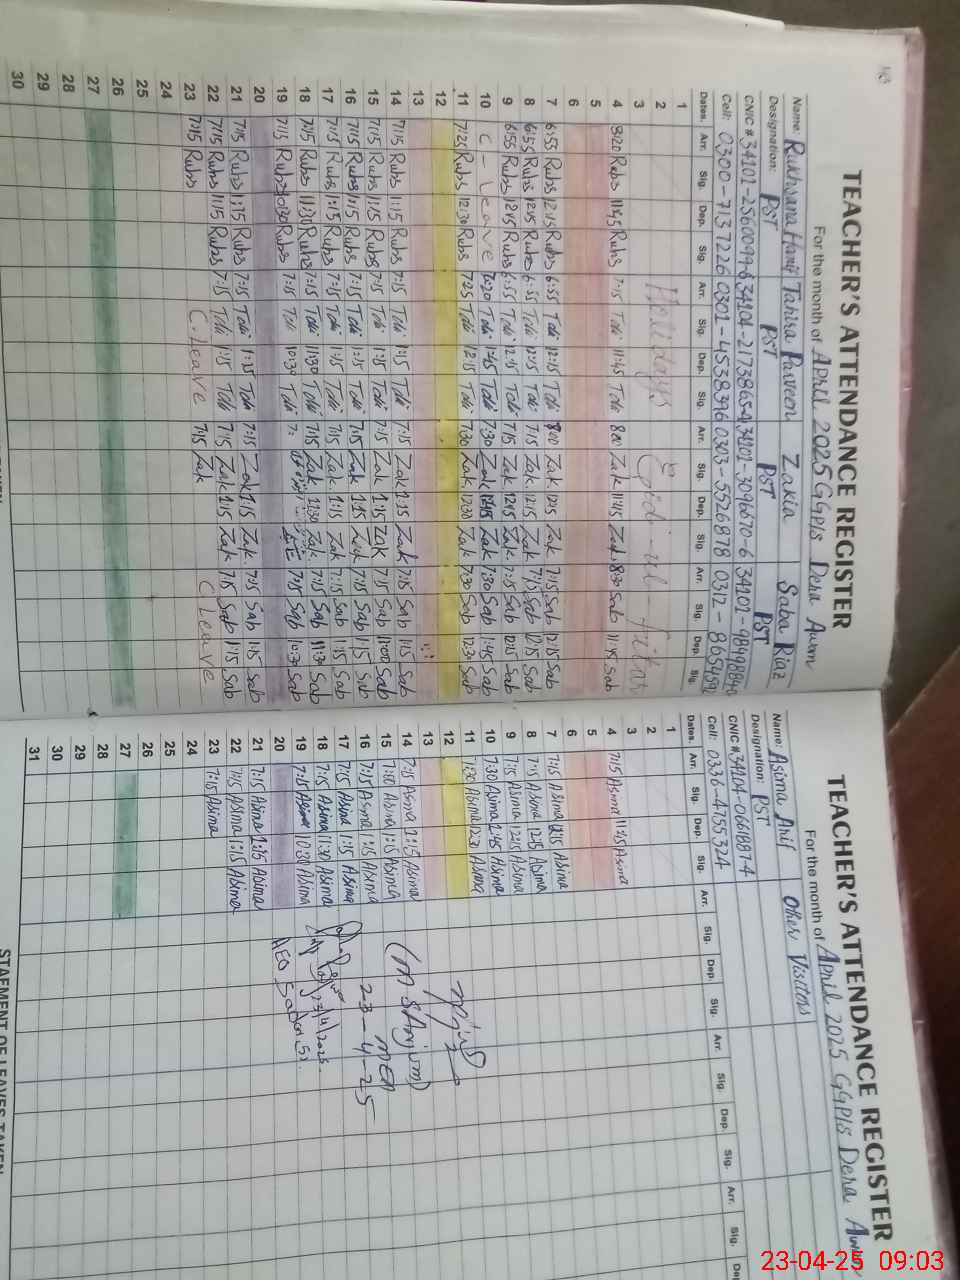 TEACHER'S ATTENDANCE REGISTER
For the month of April 2025 GGPls Dera Awan
Name: Rukhsana Hanif Tahira Parveen Zakia Saba Riaz
Designation: PST PST PST PST
CNIC # 34101-2560099-6 34104-2173865-4 34101-3096370-6 34101-9849884-0
Cell: 0300-7137226 0301-4538396 0303-5526878 0312-8654592
Dates. Arr. Sig. Dep. Sig. Arr. Sig. Dep. Sig. Arr. Sig. Dep. Sig. Arr. Sig. Dep. Sig.
1
2 Hollidays
3 Eid-ul-fithar
4 8:20 Rubs 11:45 Rubs 7:15 Tahi 11:45 Tahi 8:00 Zak 11:45 Zak 8:30 Sab 11:45 Sab
5
6
7 6:55 Rubs 12:45 Rubs 6:55 Tahi 12:15 Tahi 8:00 Zak 12:15 Zak 7:15 Sab 12:15 Sab
8 6:55 Rubs 12:45 Rubs 6:55 Tahi 12:15 Tahi 7:15 Zak 12:15 Zak 7:15 Sab 12:15 Sab
9 6:55 Rubs 12:45 Rubs 6:55 Tahi 12:15 Tahi 7:15 Zak 12:15 Zak 7:15 Sab 12:15 Sab
10 C-Leave Tahi 1:45 Tahi 7:30 Zak 12:45 Zak 7:30 Sab 1:45 Sab
11 7:25 Rubs 12:30 Rubs 7:25 Tahi 12:15 Tahi 7:30 Zak 12:30 Zak 7:30 Sab 12:30 Sab
12
13
14 7:15 Rubs 1:15 Rubs 7:15 Tahi 1:15 Tahi 7:15 Zak 1:15 Zak 7:15 Sab 1:15 Sab
15 7:15 Rubs 1:15 Rubs 7:15 Tahi 1:15 Tahi 7:15 Zak 1:15 Zak 7:15 Sab Sab
16 7:15 Rubs 1:15 Rubs 7:15 Tahi 1:15 Tahi 7:15 Zak 1:15 Zak 7:15 Sab 1:15 Sab
17 7:15 Rubs 1:15 Rubs 7:15 Tahi 1:15 Tahi 7:15 Zak 1:15 Zak 7:15 Sab 1:15 Sab
18 7:15 Rubs 11:30 Rubs 7:15 Tahi 11:30 Tahi 7:15 Zak 11:30 Zak 7:15 Sab 11:30 Sab
19 7:15 Rubs 10:30 Rubs 7:15 Tahi 10:30 Tahi 7: 7:15 Sab 10:30 Sab
20
21 7:15 Rubs 1:15 Rubs 7:15 Tahi 1:15 Tahi 7:15 Zak 1:15 Zak 7:15 Sab 1:15 Sab
22 7:15 Rubs 1:15 Rubs 7:15 Tahi 1:15 Tahi 7:15 Zak 1:15 Zak 7:15 Sab 1:15 Sab
23 7:15 Rubs C.Leave 7:15 Zak C Leave
24
25
26
27
28
29
30
TEACHER'S ATTENDANCE REGISTER
For the month of April 2025 GGPls Dera Awan
Name: Asima Arif Other Visitors
Designation: PST
CNIC # 34104-0661887-4
Cell: 0336-4755324
Dates. Arr. Sig. Dep. Sig. Arr. Sig. Dep. Sig. Arr. Sig. Dep. Sig. Arr. Sig. De
1
2
3
4 7:15 Asima 11:45 Asima
5
6
7 7:15 Asima 12:15 Asima
8 7:15 Asima 12:15 Asima
9 7:15 Asima 12:15 Asima
10 7:30 Asima 12:45 Asima
11 7:30 Asima 12:30 Asima
12
13
14 7:15 Asima 1:15 Asima
15 Asima 1:15 Asima
16 7:15 Asima 1:15 Asima
17 7:15 Asima 1:15 Asima
18 7:15 Asima 11:30 Asima
19 7:15 Asima 10:30 Asima
20
21 7:15 Asima 1:15 Asima
22 7:15 Asima 1:15 Asima
23 7:15 Asima
24
25
26
27
28
29
30
31
(M S Anjum)
MEA
23-4-25
23/4/2025
AEO
STAEMENT OF LEAVES TAKEN
23-04-25 09:03